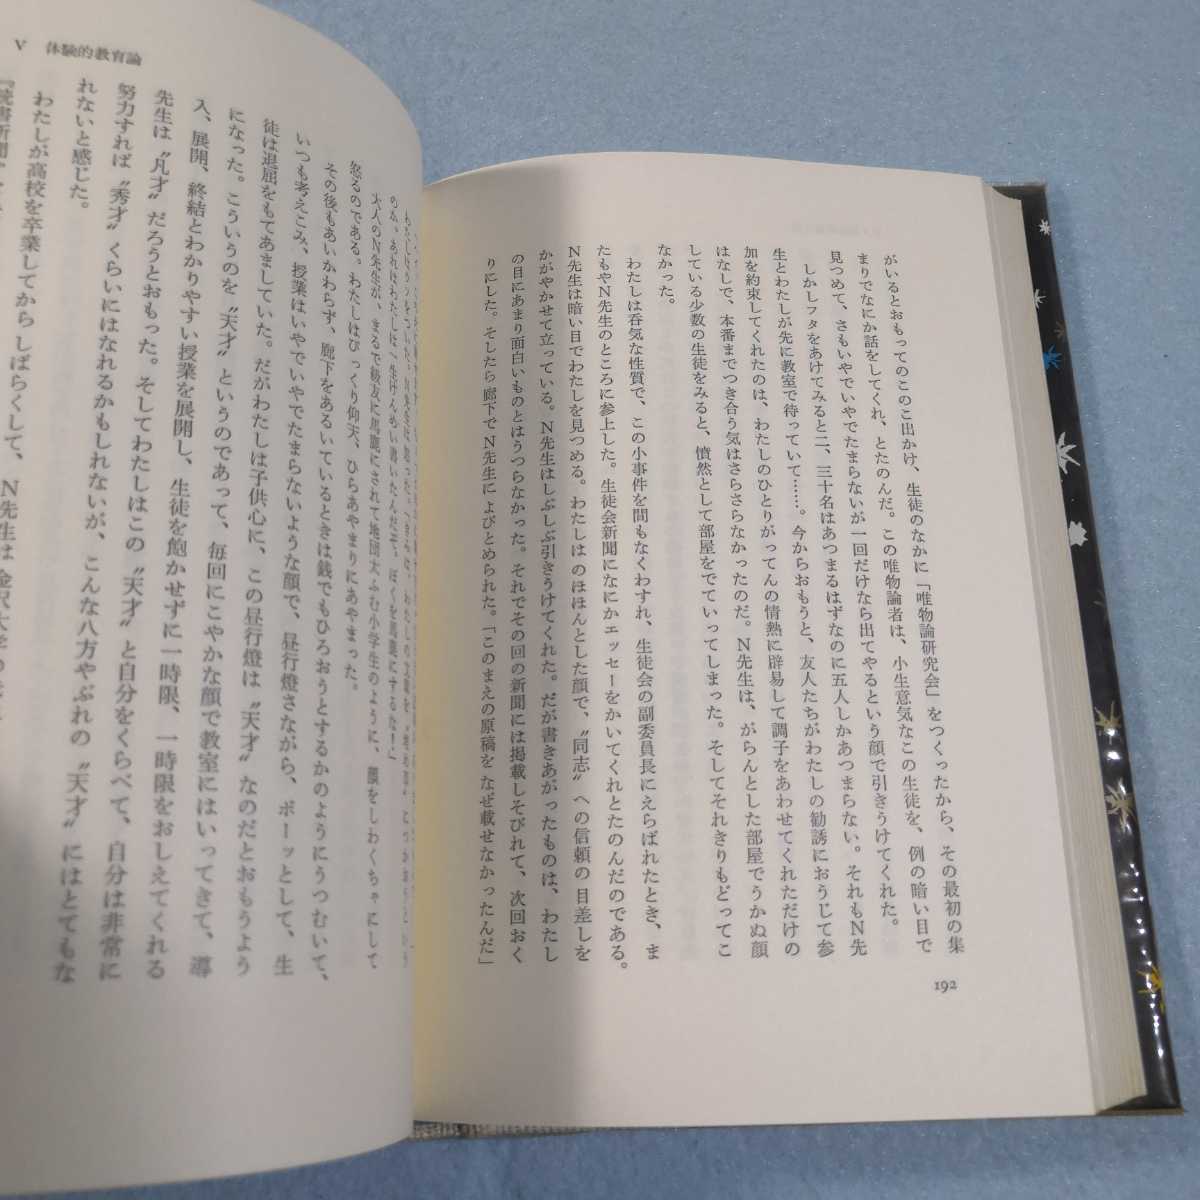 がいるとおもってのこのこ出かけ、生徒のなかに「唯物論研究会」をつくったから、その最初の集
まりでなにか話をしてくれ、とたのんだ。この唯物論者は、小生意気なこの生徒を、例の暗い目で
見つめて、さもいやでいやでたまらないが一回だけなら出てやるという顔で引きうけてくれた。
しかしフタをあけてみると二、三十名はあつまるはずなのに五人しかあつまらない。それもN先
生とわたしが先に教室で待っていて……。今からおもうと、友人たちがわたしの勧誘におうじて参
加を約束してくれたのは、わたしのひとりがってんの情熱に辟易して調子をあわせてくれただけの
はなしで、本番までつき合う気はさらさらなかったのだ。N先生は、がらんとした部屋でうかぬ顔
している少数の生徒をみると、憤然として部屋をでていってしまった。そしてそれきりもどってこ
なかった。
わたしは呑気な性質で、この小事件を間もなくわすれ、生徒会の副委員長にえらばれたとき、ま
たもやN先生のところに参上した。生徒会新聞になにかエッセーをかいてくれとたのんだのである。
N先生は暗い目でわたしを見つめる。わたしは のほほんとした顔で、〝同志〟への信頼の目差しを
かがやかせて立っている。N先生はしぶしぶ引きうけてくれた。だが書きあがったものは、わたし
の目にあまり面白いものとはうつらなかった。それでその回の新聞には掲載しそびれて、次回おく
りにした。そしたら廊下でN先生によびとめられた。「このまえの原稿を なぜ載せなかったんだ」
192
V 体験的教育論
大人のN先生が、まるで級友に馬鹿にされて地団太ふむ小学生のように、顔をしわくちゃにして
怒るのである。わたしはびっくり仰天、ひらあやまりにあやまった。
その後もあいかわらず、廊下をあるいているときは銭でもひろおうとするかのようにうつむいて、
いつも考えこみ、授業はいやでいやでたまらないような顔で、昼行燈さながら、ボーッとして、生
徒は退屈をもてあましていた。だがわたしは子供心に、この昼行燈は〝天才〟なのだとおもうよう
になった。こういうのを〝天才〟というのであって、毎回にこやかな顔で教室にはいってきて、導
入、展開、終結とわかりやすい授業を展開し、生徒を飽かせずに一時限、一時限をおしえてくれる
先生は〝凡才〟だろうとおもった。そしてわたしはこの〝天才〟と自分をくらべて、自分は非常に
努力すれば〝秀才〟くらいにはなれるかもしれないが、こんな八方やぶれの〝天才〟にはとてもな
れないと感じた。
わたしが高校を卒業してからしばらくして、N先生は金沢大学の
『読書新聞